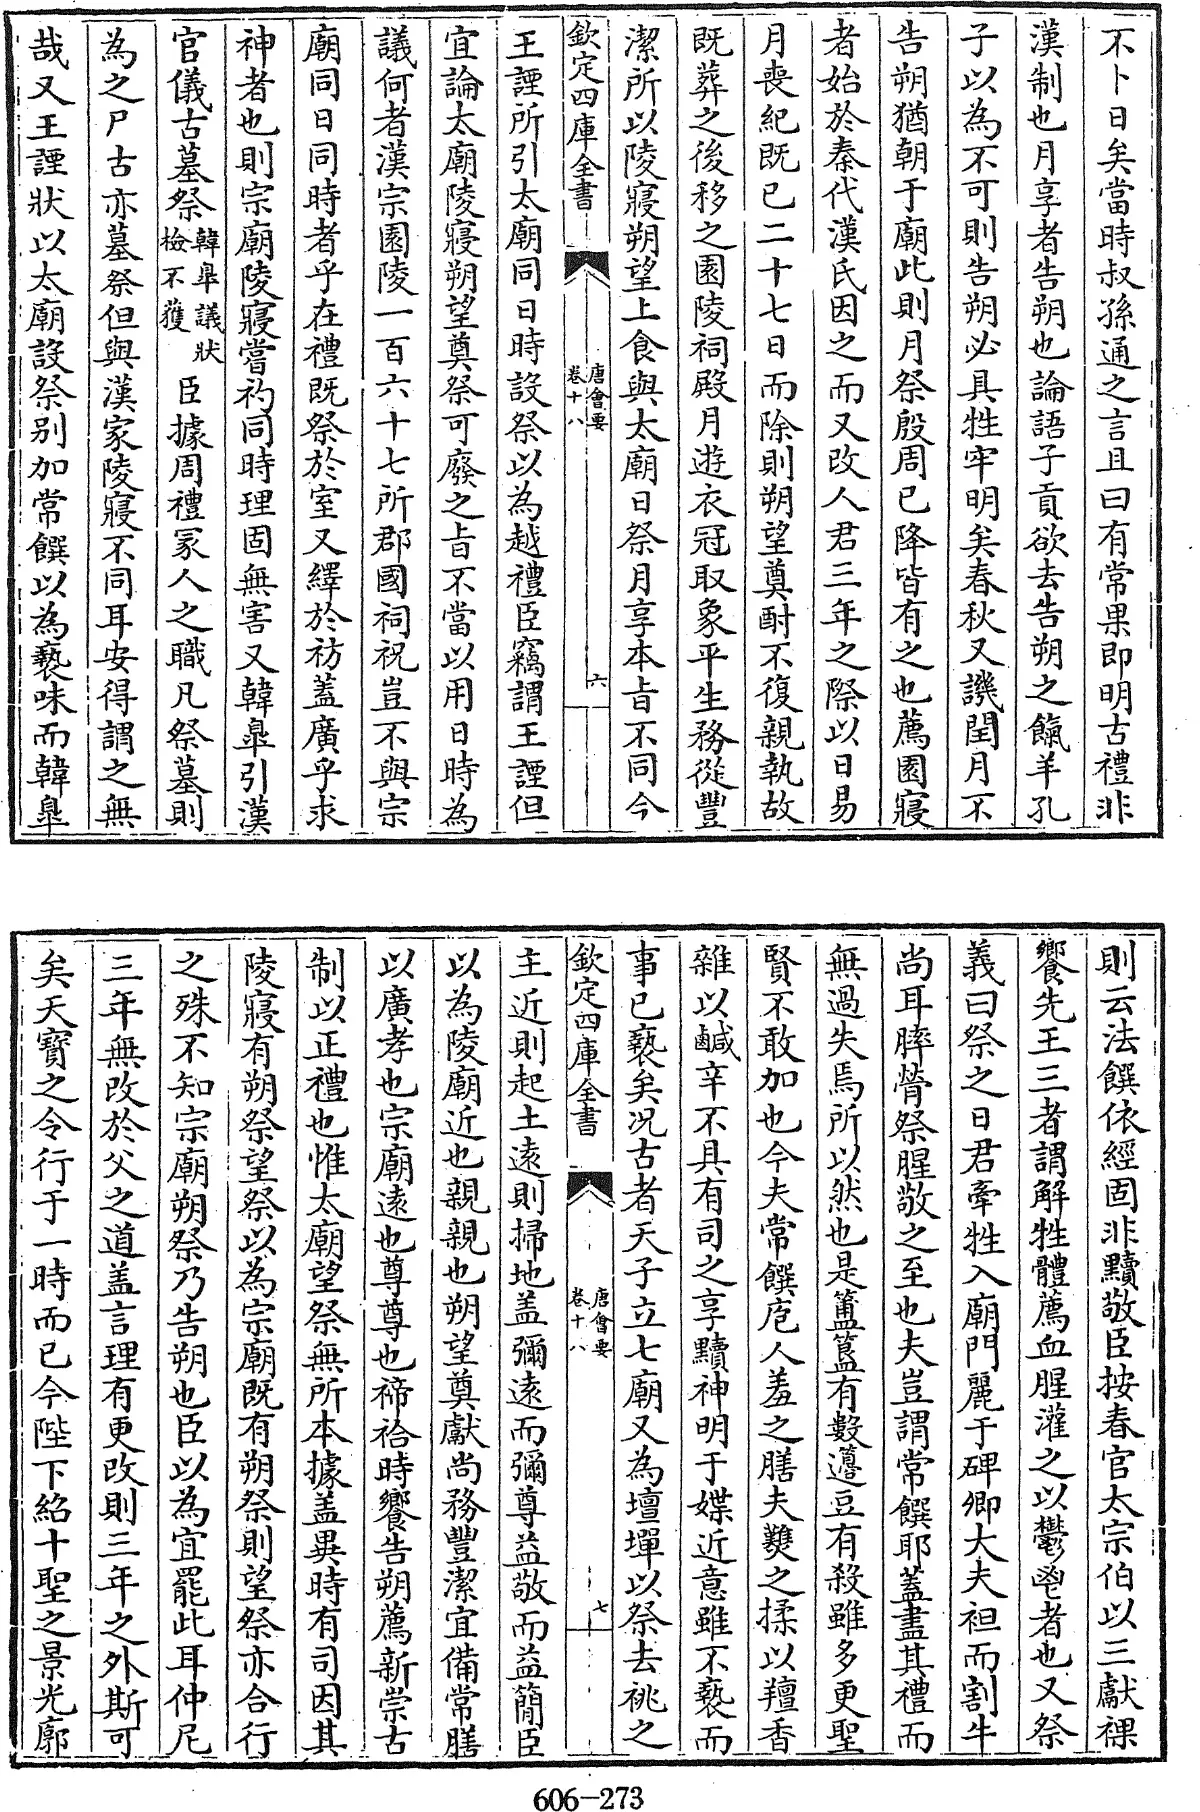 不卜日矣當時叔孫通之言且曰有常果即明古禮非
漢制也月享者告朔也論語子貢欲去告朔之餼羊孔
子以為不可則告朔必具牲牢明矣春秋又譏閏月不
告朔猶朝于廟此則月祭殷周已降皆有之也薦園寢
者始於秦代漢氏因之而又改人君三年之際以日易
月喪紀既已二十七日而除則朔望奠酎不復親執故
既葬之後移之園陵祠殿月遊衣冠取象平生務從豐
潔所以陵寢朔望上食與太廟日祭月享本旨不同今
欽定四庫全書
唐會要
卷十八
六
王諲所引太廟同日時設祭以為越禮臣竊謂王諲但
宜論太廟陵寢朔望奠祭可廢之旨不當以用日時為
議何者漢宗園陵一百六十七所郡國祠祝豈不與宗
廟同日同時者乎在禮既祭於室又繹於祊蓋廣乎求
神者也則宗廟陵寢嘗礿同時理固無害又韓臯引漢
官儀古墓祭韓臯議狀檢不獲臣據周禮冢人之職凡祭墓則
為之尸古亦墓祭但與漢家陵寢不同耳安得謂之無
哉又王諲狀以太廟設祭别加常饌以為褻味而韓臯
則云法饌依經固非黷敬臣按春官太宗伯以三獻祼
饗先王三者謂解牲體薦血腥灌之以鬱鬯者也又祭
義曰祭之日君牽牲入廟門麗于碑卿大夫袒而割牛
尚耳膟膋祭腥敬之至也夫豈謂常饌耶蓋盡其禮而
無過失焉所以然也是簠簋有數籩豆有殺雖多更聖
賢不敢加也今夫常饌庖人羞之膳夫爕之揉以羶香
雜以鹹辛不具有司之享黷神明于媟近意雖不褻而
事已褻矣况古者天子立七廟又為壇墠以祭去祧之
欽定四庫全書
唐會要
卷十八
七
主近則起土遠則掃地盖彌遠而彌尊益敬而益簡臣
以為陵廟近也親親也朔望奠獻尚務豐潔宜備常膳
以廣孝也宗廟遠也尊尊也禘祫時饗告朔薦新崇古
制以正禮也惟太廟望祭無所本據盖異時有司因其
陵寢有朔祭望祭以為宗廟既有朔祭則望祭亦合行
之殊不知宗廟朔祭乃告朔也臣以為宜罷此耳仲尼
三年無改於父之道盖言理有更改則三年之外斯可
矣天寶之令行于一時而已今陛下紹十聖之景光廓
606-273